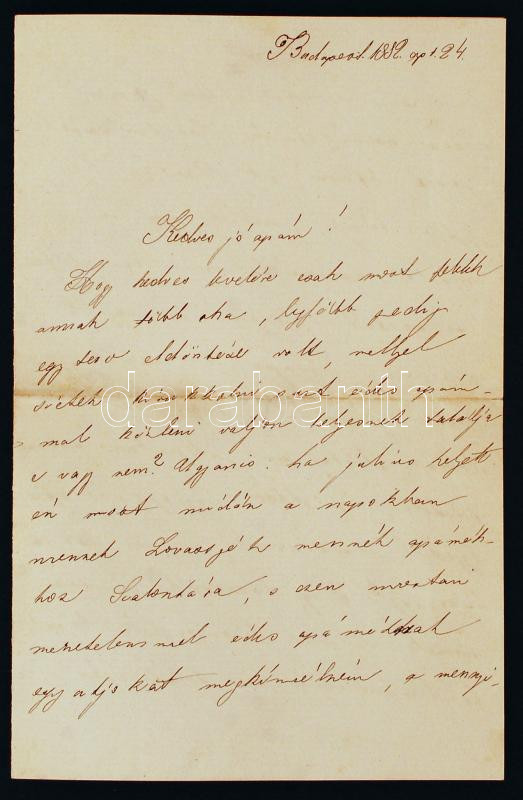 Budapest. 1882. ap 1. 24.
Kedves jó apám!
Hogy kedves levelére csak most felelek
annak több oka, legfőbb pedig
egy terv eldöntése volt, mellyel
édes apám-
mal közleni valjon helyesnek találja
e vagy nem? Ugyanis. ha július helyett
én most midőn a napokban
mennek Lovassyék mennék apámék-
hoz Szalontára, s ezen
menetelemmel édes apámékat
egy a dj okát megkímélném, a mennyi-
darabanth
.com